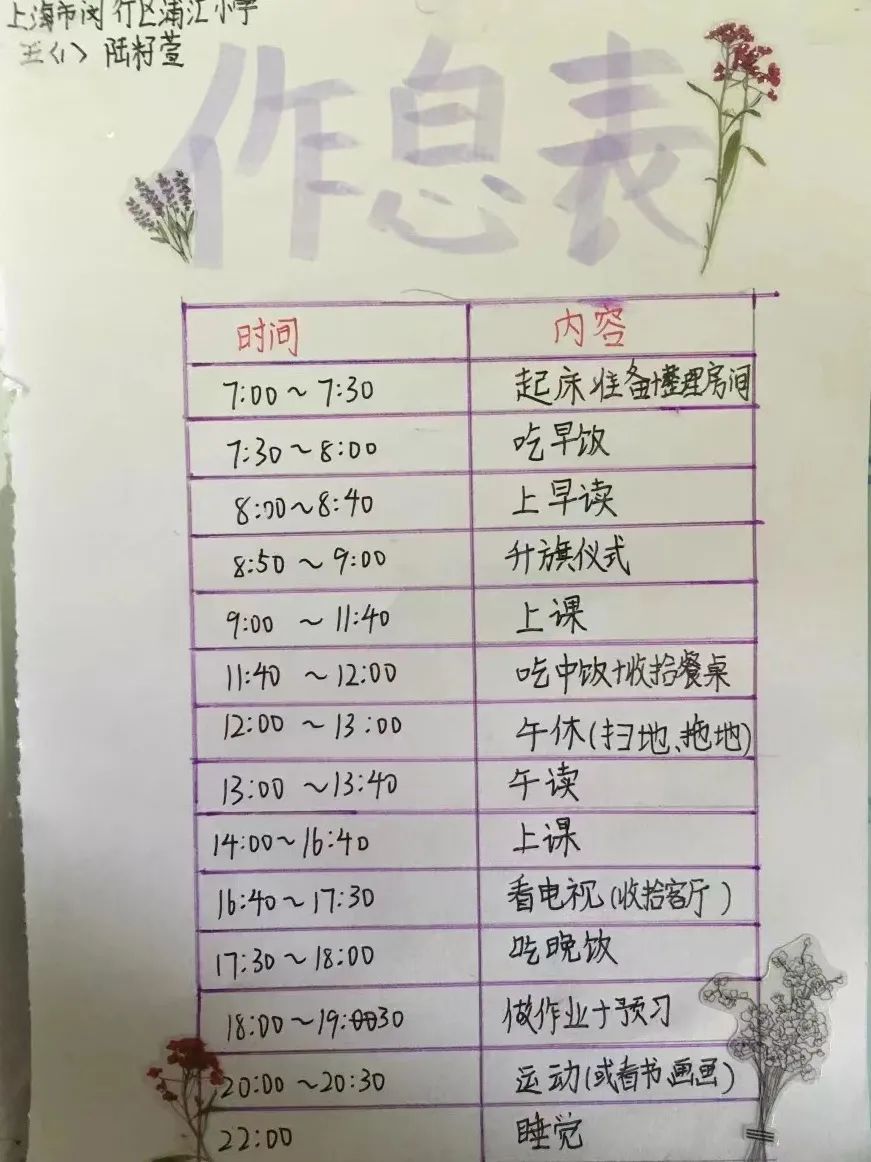 上海市闵行区浦汇小学
五〈1〉 陆籽萱
作息表
时间 内容
7:00～7:30 起床准备+整理房间
7:30～8:00 吃早饭
8:00～8:40 上早读
8:50～9:00 升旗仪式
9:00～11:40 上课
11:40～12:00 吃中饭+收拾餐桌
12:00～13:00 午休(扫地、拖地)
13:00～13:40 午读
14:00～16:40 上课
16:40～17:30 看电视(收拾客厅)
17:30～18:00 吃晚饭
18:00～19:30 做作业+预习
20:00～20:30 运动(或看书、画画)
22:00 睡觉